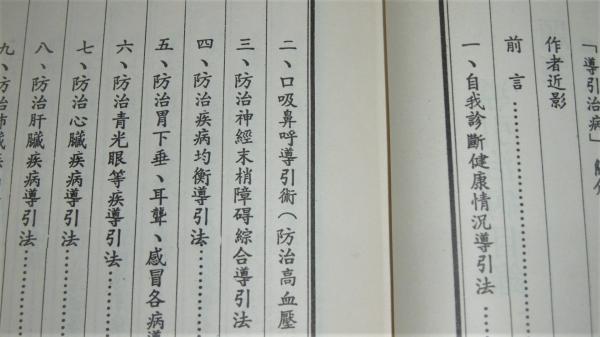 「導引治病」簡介
作者近影
前言
一、自我診斷健康情況導引法
二、口吸鼻呼導引術（防治高血壓
三、防治神經末梢障碍綜合導引法
四、防治疾病均衡導引法
五、防治胃下垂、耳聾、感冒各病導
六、防治青光眼等疾導引法
七、防治心臟疾病導引法
八、防治肝臟疾病導引法
九、防治肺臟疾